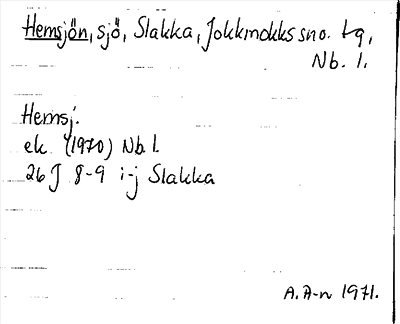 Hemsjön, sjö, Slakka, Jokkmokks sno. tg,
Nb. l.
Hemsj.
ek. (1970) Nb l.
26 J 8-9 i-j Slakka
A. A-n 1971.